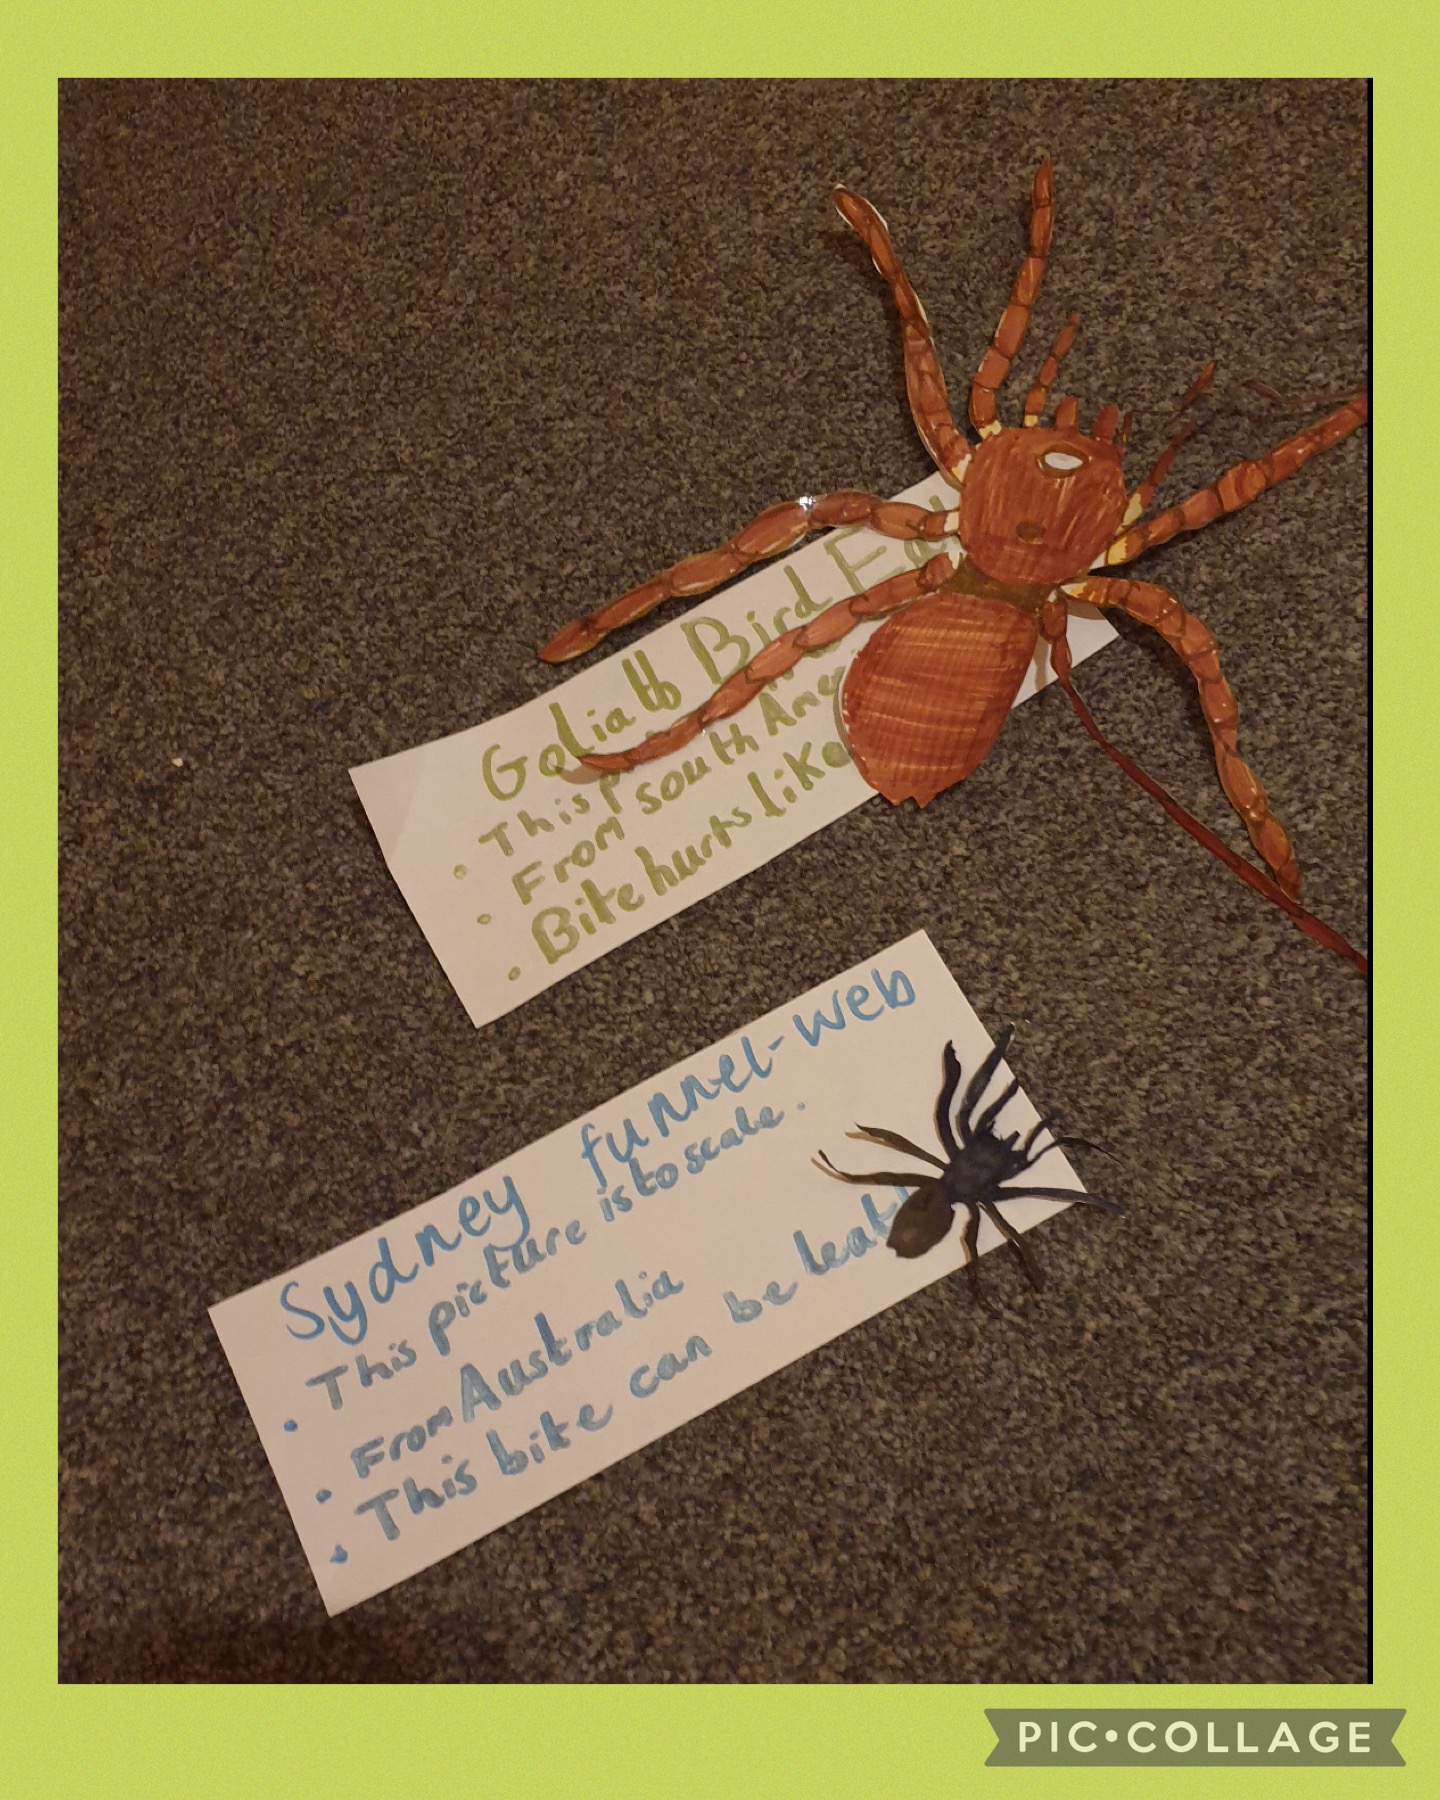 Goliath Bird
• This
• From south
• Bite hurts like
Sydney funnel-web
• This picture is to scale.
• From Australia
• This bite can be
PIC•COLLAGE